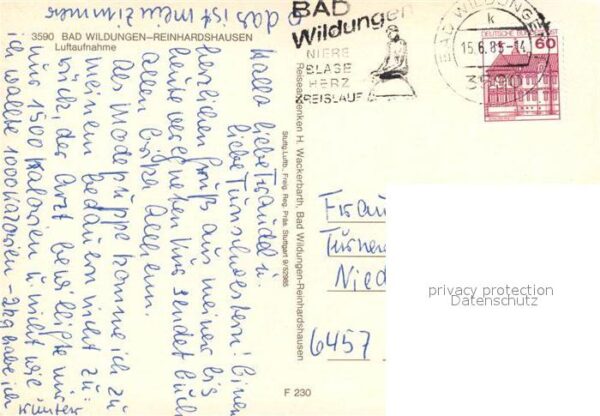 ⊗ das ist mein Zimmer
3590 BAD WILDUNGEN–REINHARDSHAUSEN
Luftaufnahme
BAD
Wildungen
NIERE
BLASE
HERZ
KREISLAUF
BAD WILDUNGEN
k
15.6.85-14
3590
DEUTSCHE BUNDESPOST
60
Hallo liebe Traudel u.
liebe Turnschwestern! Einen
herzlichen Gruß aus meiner bis
heute verregneten Kur sendet Euch
allen
Als Modepuppe komme ich zu
meinem Bedauern nicht zu-
rück, der Arzt bewilligte mir
nur 1500 Kalorien u. nicht wie
ich wollte 1000 Kalorien – 2 kg habe ich
runter
Reiseandenken H. Wackerbarth, Bad Wildungen-Reinhardshausen
Stuttg. Luftb., Freig. Reg. Präs. Stuttgart 9/52985
Frau
Turner
Nied
6457
F 230
privacy protection
Datenschutz